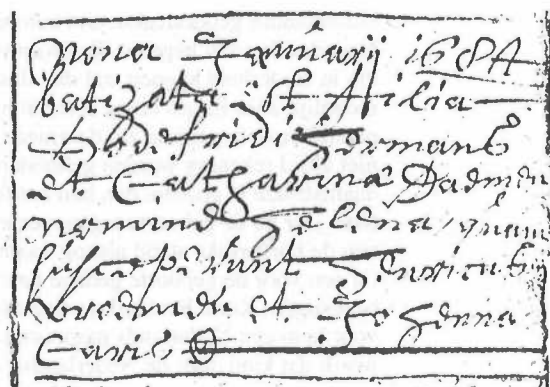 nona Januarij 1684
batizata est filia
Godefridi Hermans
et Catharinæ Daemen
nomine Helena, quam
susceperunt Henricus
et Johanna
Caris